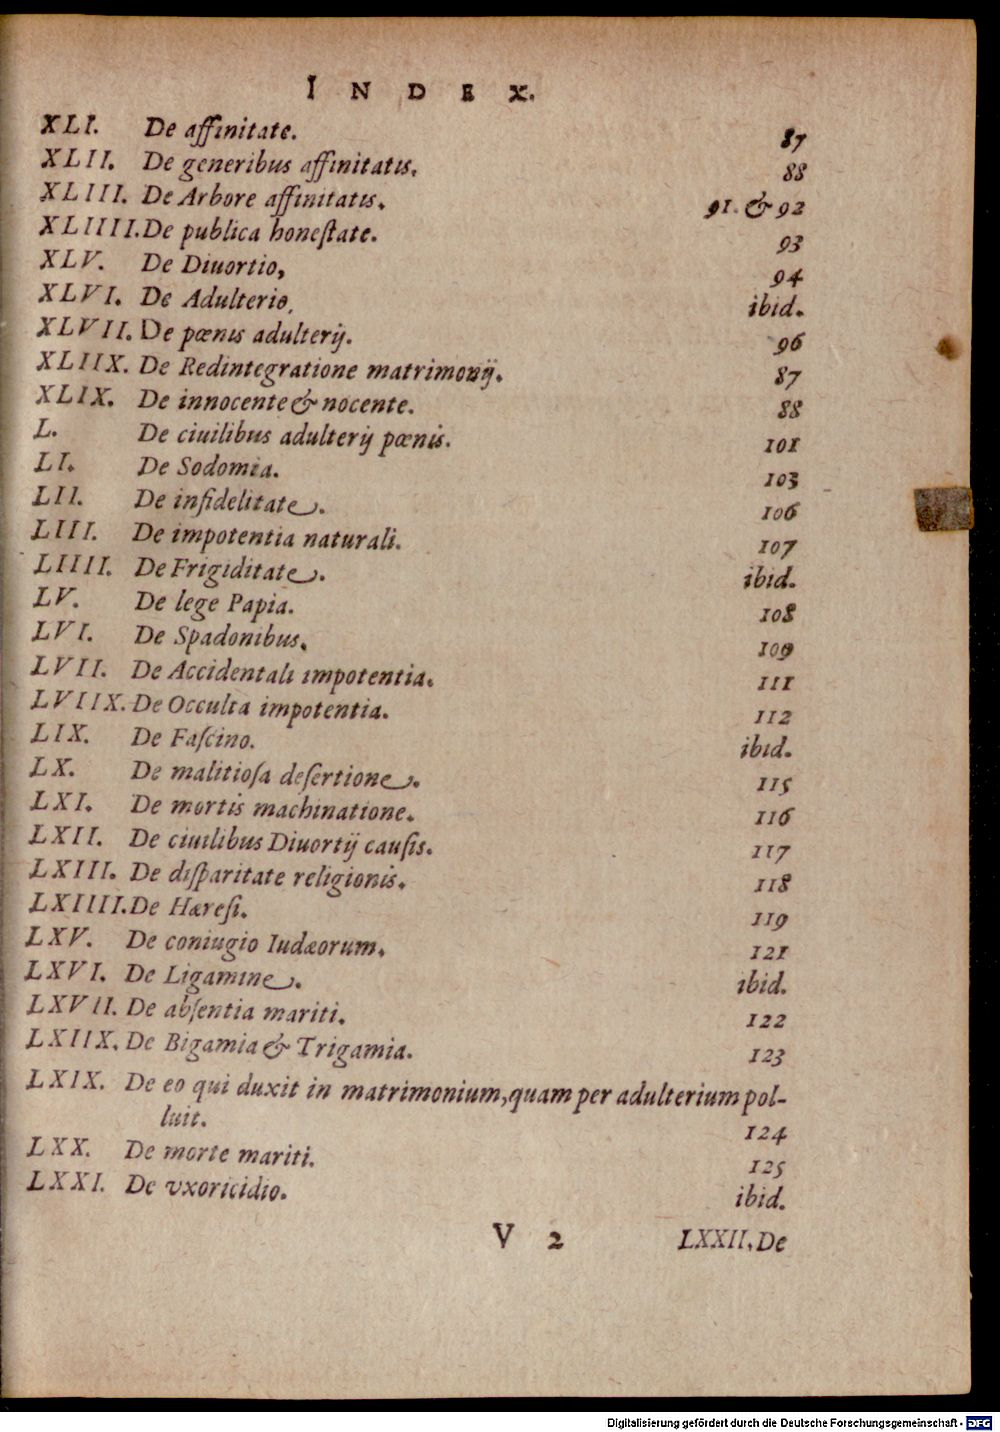 INDEX.
XLI. De affinitate. 87
XLII. De generibus affinitatis. 88
XLIII. De Arbore affinitatis. 91. & 92
XLIIII. De publica honeſtate. 93
XLV. De Diuortio, 94
XLVI. De Adulterio. ibid.
XLVII. De pœnis adulterij. 96
XLIIX. De Redintegratione matrimonij. 87
XLIX. De innocente & nocente. 88
L. De ciuilibus adulterij pœnis. 101
LI. De Sodomia. 103
LII. De infidelitate. 106
LIII. De impotentia naturali. 107
LIIII. De Frigiditate. ibid.
LV. De lege Papia. 108
LVI. De Spadonibus. 109
LVII. De Accidentali impotentia. 111
LVIIX. De Occulta impotentia. 112
LIX. De Faſcino. ibid.
LX. De malitioſa deſertione. 115
LXI. De mortis machinatione. 116
LXII. De ciuilibus Diuortij cauſis. 117
LXIII. De diſparitate religionis. 118
LXIIII. De Hæreſi. 119
LXV. De coniugio Iudæorum. 121
LXVI. De Ligamine. ibid.
LXVII. De abſentia mariti. 122
LXIIX. De Bigamia & Trigamia. 123
LXIX. De eo qui duxit in matrimonium, quam per adulterium pol-
luit. 124
LXX. De morte mariti. 125
LXXI. De vxoricidio. ibid.
V 2 LXXII. De
Digitalisierung gefördert durch die Deutsche Forschungsgemeinschaft - DFG